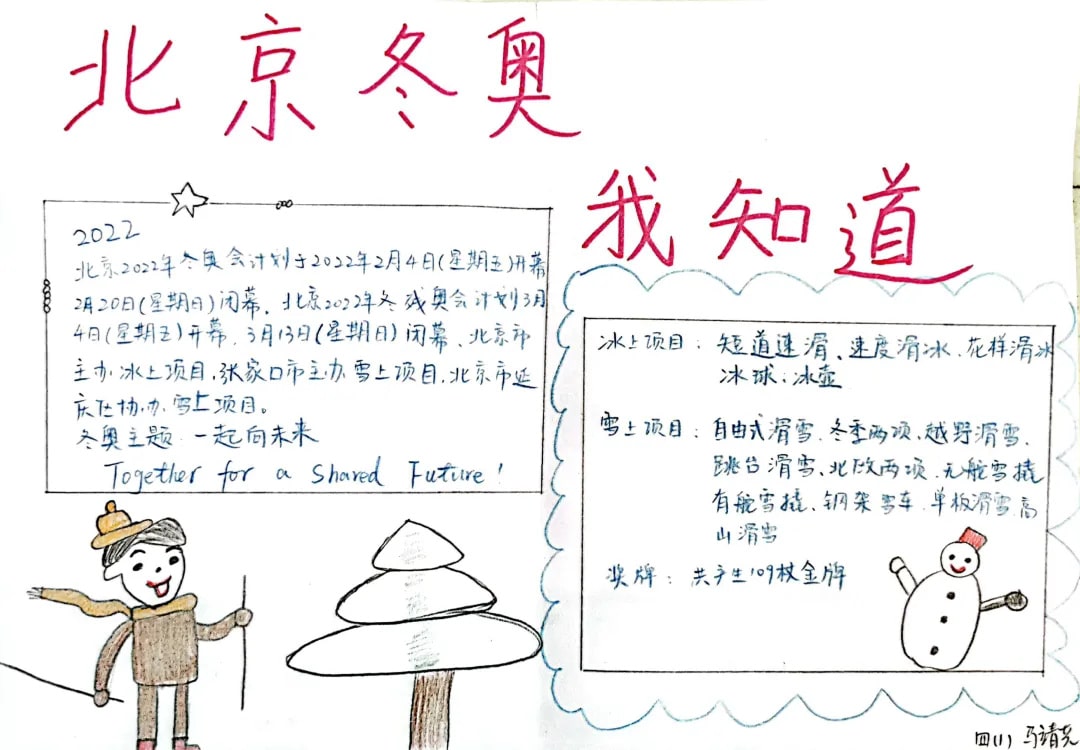 北京冬奥
我知道
2022
北京2022年冬奥会计划于2022年2月4日(星期五)开幕
2月20日(星期日)闭幕，北京2022年冬残奥会计划3月
4日(星期五)开幕，3月13日(星期日)闭幕、北京市
主办冰上项目，张家口市主办雪上项目，北京市延
庆协办雪上项目。
冬奥主题：一起向未来
Together for a Shared Future!
冰上项目：短道速滑、速度滑冰、花样滑冰
冰球、冰壶
雪上项目：自由式滑雪、冬季两项、越野滑雪、
跳台滑雪、北欧两项、无舵雪橇
有舵雪橇、钢架雪车、单板滑雪、高
山滑雪
奖牌：共产生109枚金牌
四(1) 马靖尧